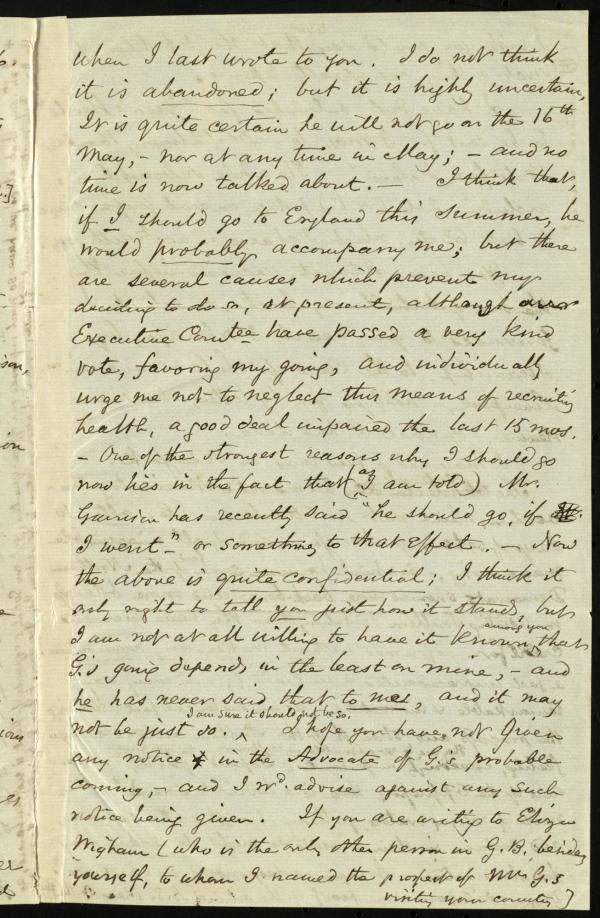 when I last wrote to you. I do not think
it is abandoned; but it is highly uncertain,
It is quite certain he will not go on the 16th
May,- nor at any time in May; - and no
time is now talked about. — I think that,
if I should go to England this summer, he
would probably accompany me; but there
are several causes which prevent my
deciding to do so, at present, although our
Executive Comtee have passed a very kind
vote, favoring my going, and individually
urge me not to neglect this means of recruiting
health, a good deal impaired the last 15 mos.
- One of the strongest reasons why I should go
now lies in the fact that (as I am told) Mr.
Garrison has recently said "he should go, if
I went" - or something to that effect. - Now
the above is quite confidential; I think it
only right to tell you just how it stands, but
I am not at all willing to have it known among you, that
G.'s going depends in the least on mine, - and
he has never said that to me, and it may
not be just so. I am sure it should not be so. I hope you have not given
any notice in the Advocate of G.'s probable
coming, - and I wd. advise against any such
notice being given. If you are writing to Eliza
Wigham (who is the only other person in G.B. besides
yourself, to whom I named the prospect of Mr. G.'s
visiting your country)